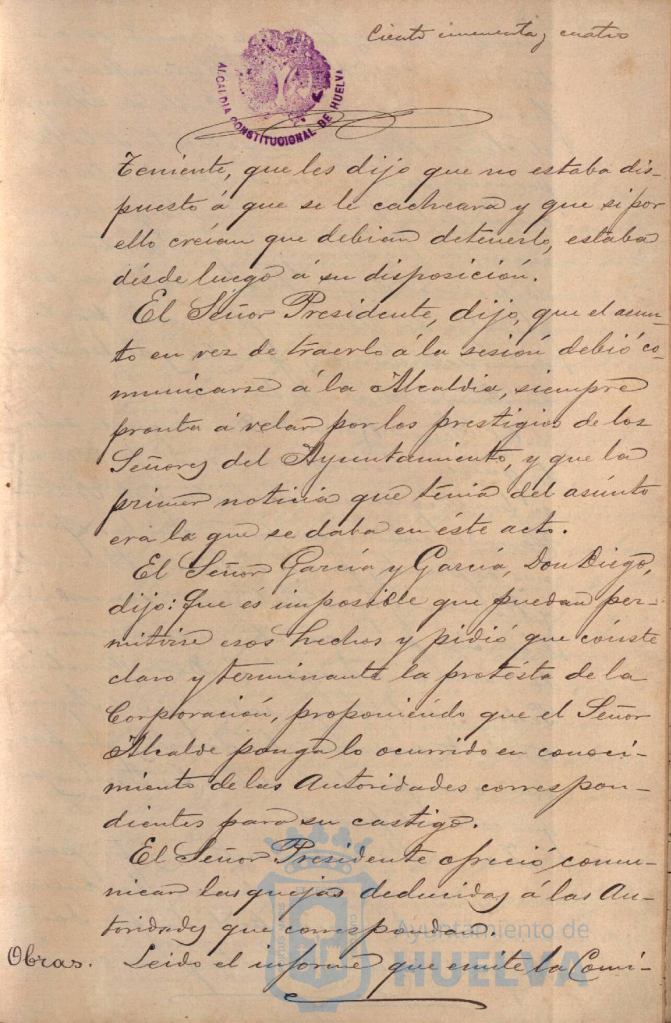 Ciento cincuenta y cuatro
ALCALDIA CONSTITUCIONAL DE HUELVA
Teniente, que les dijo que no estaba dis-
puesto á que se le cacheara y que si por
ello creian que debian detenerlo, estaba
désde luego á su disposición.
El Señor Presidente, dijo, que el asun-
to en vez de traerlo á la sesión debió co-
municarse á la Alcaldia, siempre
pronta á velar por los prestigios de los
Señores del Ayuntamiento, y que la
primer noticia que tenia del asúnto
era la que se daba en éste acto.
El Señor Garcia y Garcia, Don Diego,
dijo: Que és imposible que puedan per-
mitirse esos hechos y pidió que cónste
claro y terminante la protésta de la
Corporación, proponiendo que el Señor
Alcalde ponga lo ocurrido en conoci-
miento de las Autoridades correspon-
dientes para su castigo.
El Señor Presidente ofreció comu-
nicar las quejas deducidas á las Au-
toridades que correspondan.
Obras. Leido el informe que emite la Comi-
Ayuntamiento de
HUELVA